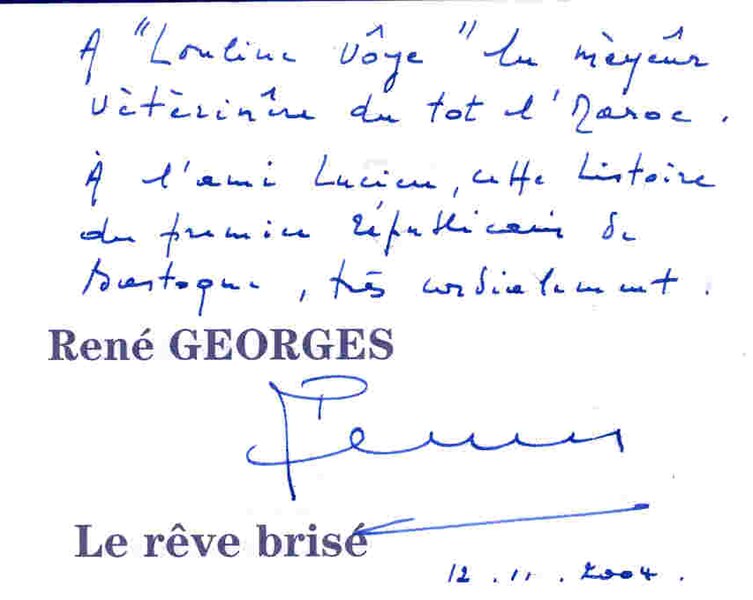 A "Louline Vôye" lu mèyeûr
vètèrinêre du tot l'Maroc.
À l'ami Lucien, cette histoire
du premier républicain de
Bastogne, très cordialement.
René GEORGES
Le rêve brisé
12.11.2004.